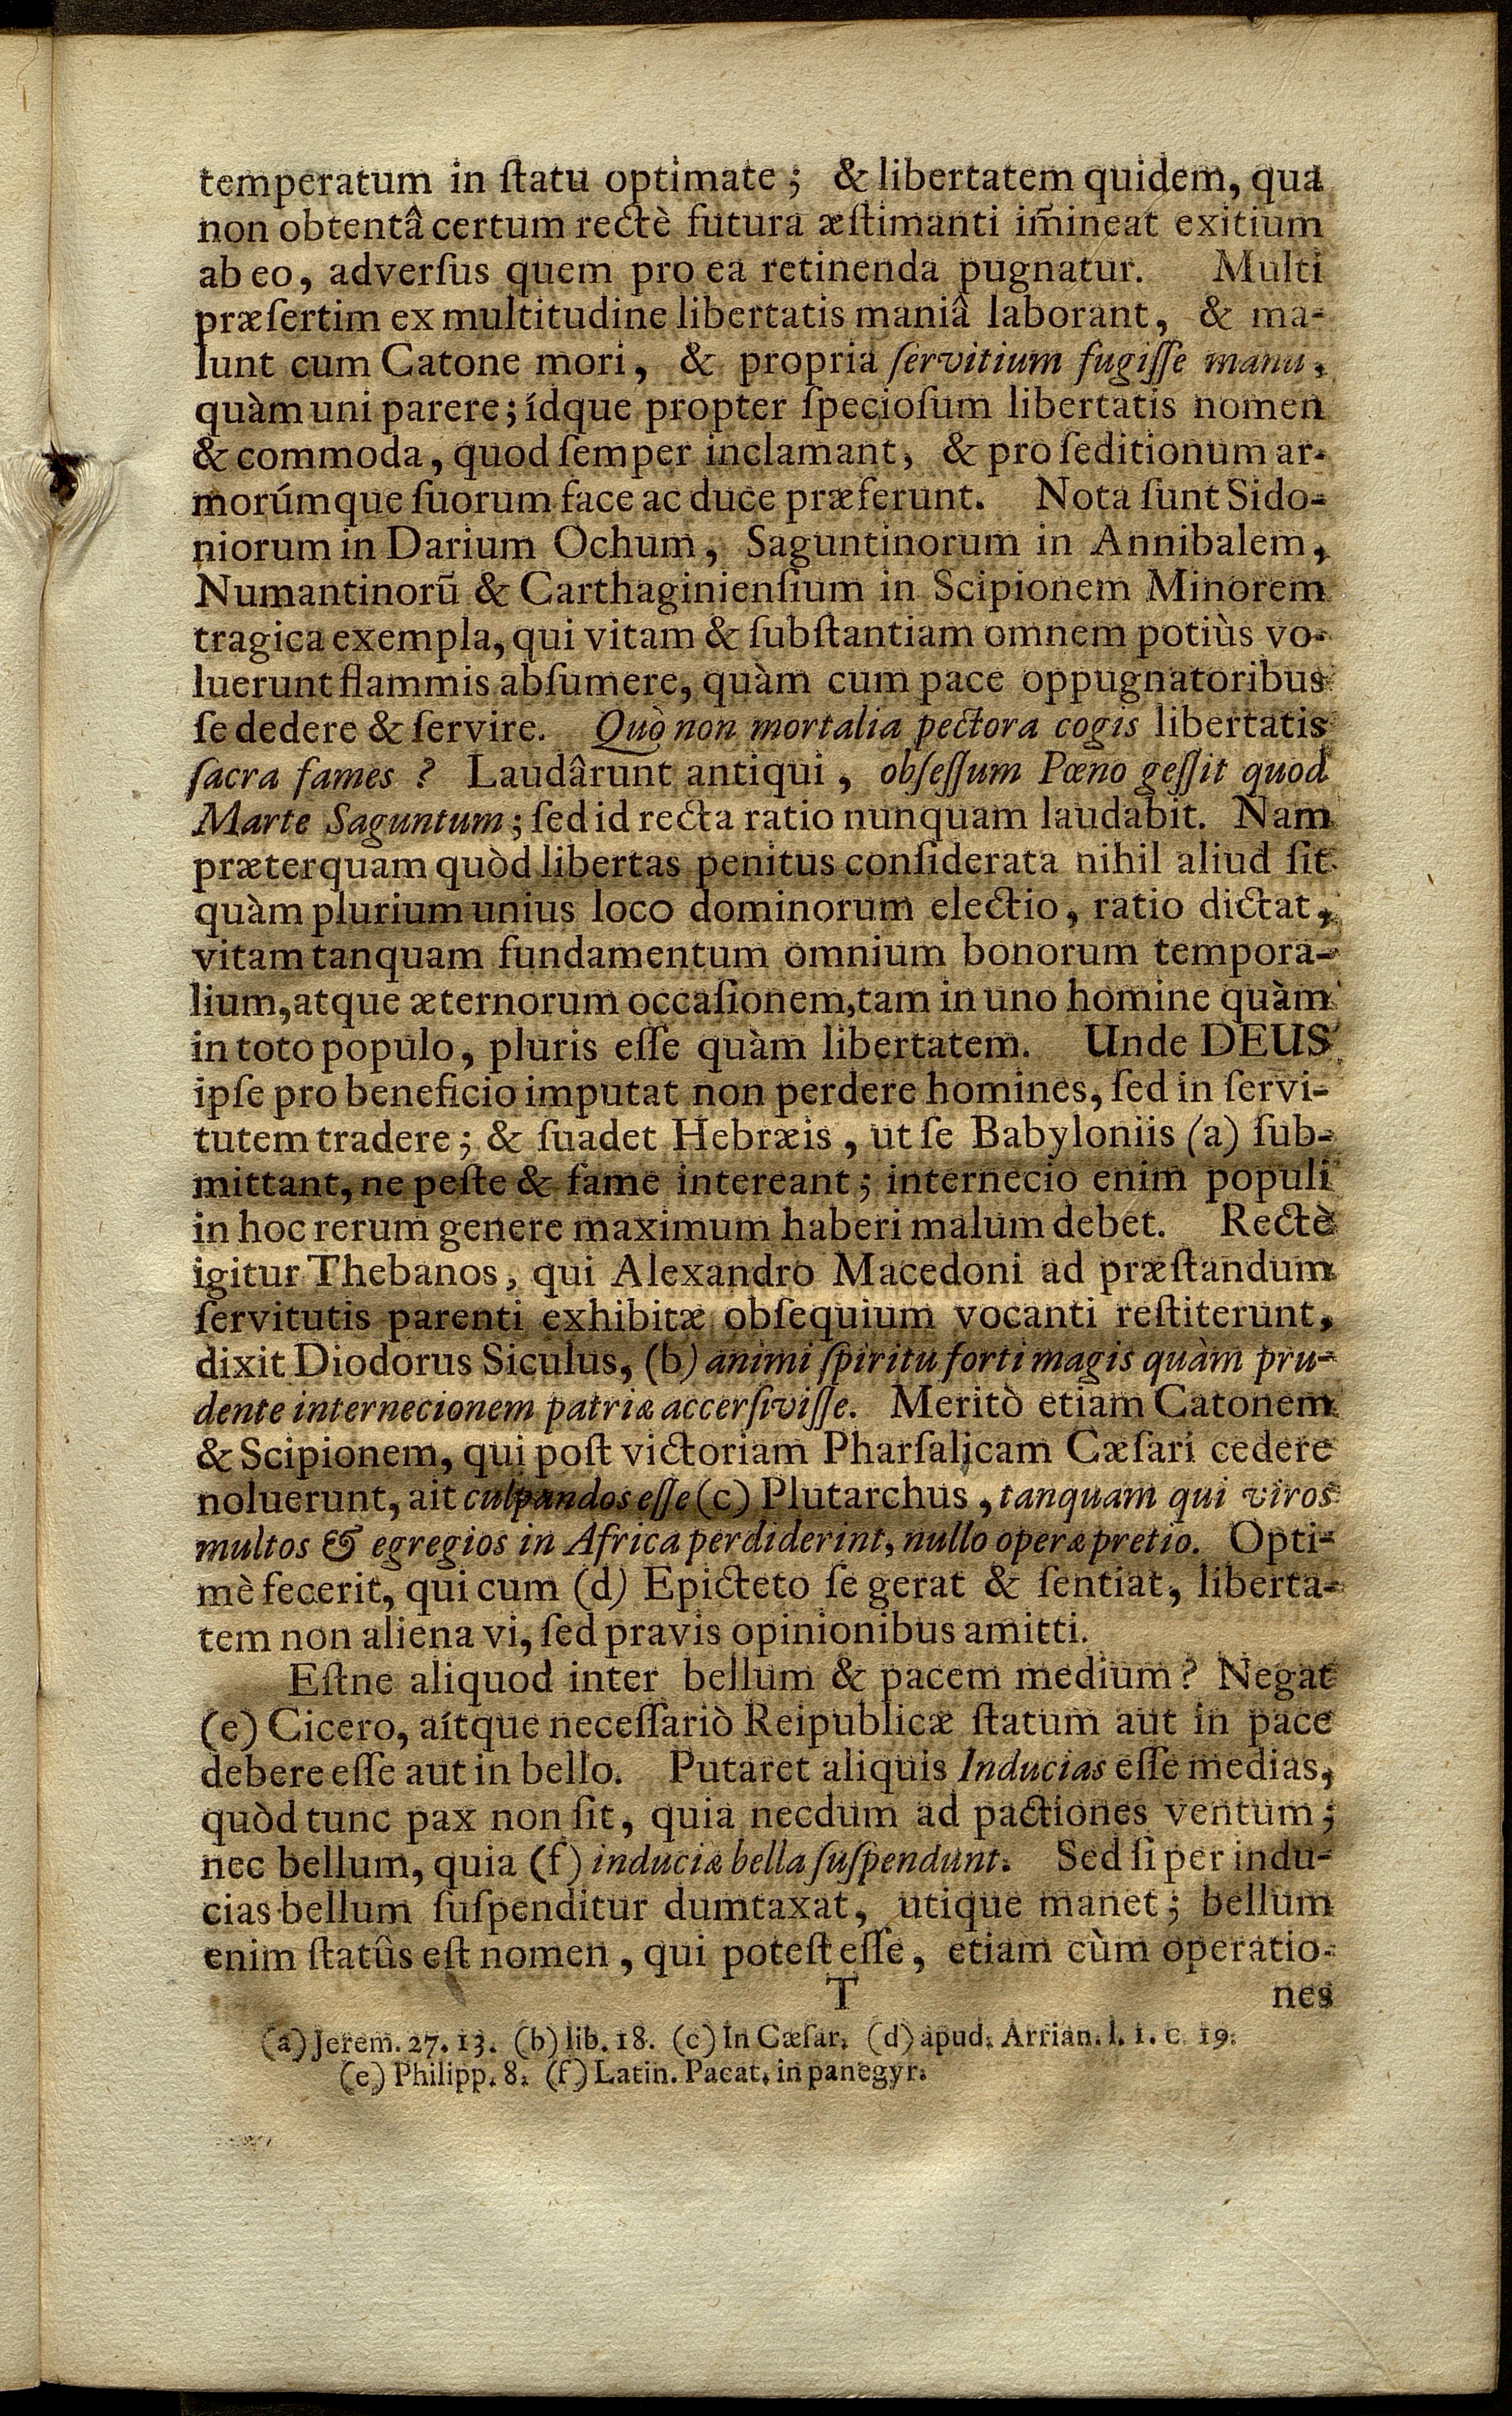 temperatum in ſtatu optimate; & libertatem quidem, qua
non obtentâ certum rectè futura æſtimanti im̃ineat exitium
ab eo, adverſus quem pro ea retinenda pugnatur. Multi
præſertim ex multitudine libertatis maniâ laborant, & ma-
lunt cum Catone mori, & propria ſervitium fugiſſe manu,
quàm uni parere; ídque propter ſpecioſum libertatis nomen
& commoda, quod ſemper inclamant, & pro ſeditionum ar-
morúmque ſuorum face ac duce præferunt. Nota ſunt Sido-
niorum in Darium Ochum, Saguntinorum in Annibalem,
Numantinorũ & Carthaginienſium in Scipionem Minorem
tragica exempla, qui vitam & ſubſtantiam omnem potiùs vo-
luerunt flammis abſumere, quàm cum pace oppugnatoribus
ſe dedere & ſervire. Quò non mortalia pectora cogis libertatis
ſacra fames ? Laudârunt antiqui, obſeſſum Pœno geſſit quod
Marte Saguntum; ſed id recta ratio nunquam laudabit. Nam
præterquam quòd libertas penitus conſiderata nihil aliud ſit
quàm plurium unius loco dominorum electio, ratio dictat,
vitam tanquam fundamentum omnium bonorum tempora-
lium, atque æternorum occaſionem, tam in uno homine quàm
in toto populo, pluris eſſe quàm libertatem. Unde DEUS
ipſe pro beneficio imputat non perdere homines, ſed in ſervi-
tutem tradere; & ſuadet Hebræis, ut ſe Babyloniis (a) ſub-
mittant, ne peſte & fame intereant; internecio enim populi
in hoc rerum genere maximum haberi malum debet. Rectè
igitur Thebanos, qui Alexandro Macedoni ad præſtandum
ſervitutis parenti exhibitæ obſequium vocanti reſtiterunt,
dixit Diodorus Siculus, (b) animi ſpiritu forti magis quàm pru-
dente internecionem patriæ accerſiviſſe. Meritò etiam Catonem
& Scipionem, qui poſt victoriam Pharſalicam Cæſari cedere
noluerunt, ait culpandos eſſe (c) Plutarchus, tanquam qui viros
multos & egregios in Africa perdiderint, nullo operæ pretio. Opti-
mè fecerit, qui cum (d) Epicteto ſe gerat & ſentiat, liberta-
tem non aliena vi, ſed pravis opinionibus amitti.
Eſtne aliquod inter bellum & pacem medium? Negat
(e) Cicero, aítque neceſſariò Reipublicæ ſtatum aut in pace
debere eſſe aut in bello. Putaret aliquis Inducias eſſe medias,
quòd tunc pax non ſit, quia necdum ad pactiones ventum;
nec bellum, quia (f) induciæ bella ſuſpendunt. Sed ſi per indu-
cias bellum ſuſpenditur dumtaxat, utique manet; bellum
enim ſtatûs eſt nomen, qui poteſt eſſe, etiam cùm operatio-
T nes
(a) Jerem. 27. 13. (b) lib. 18. (c) In Cæſar. (d) apud. Arrian. l. 1. c. 19.
(e) Philipp. 8. (f) Latin. Pacat. in panegyr.